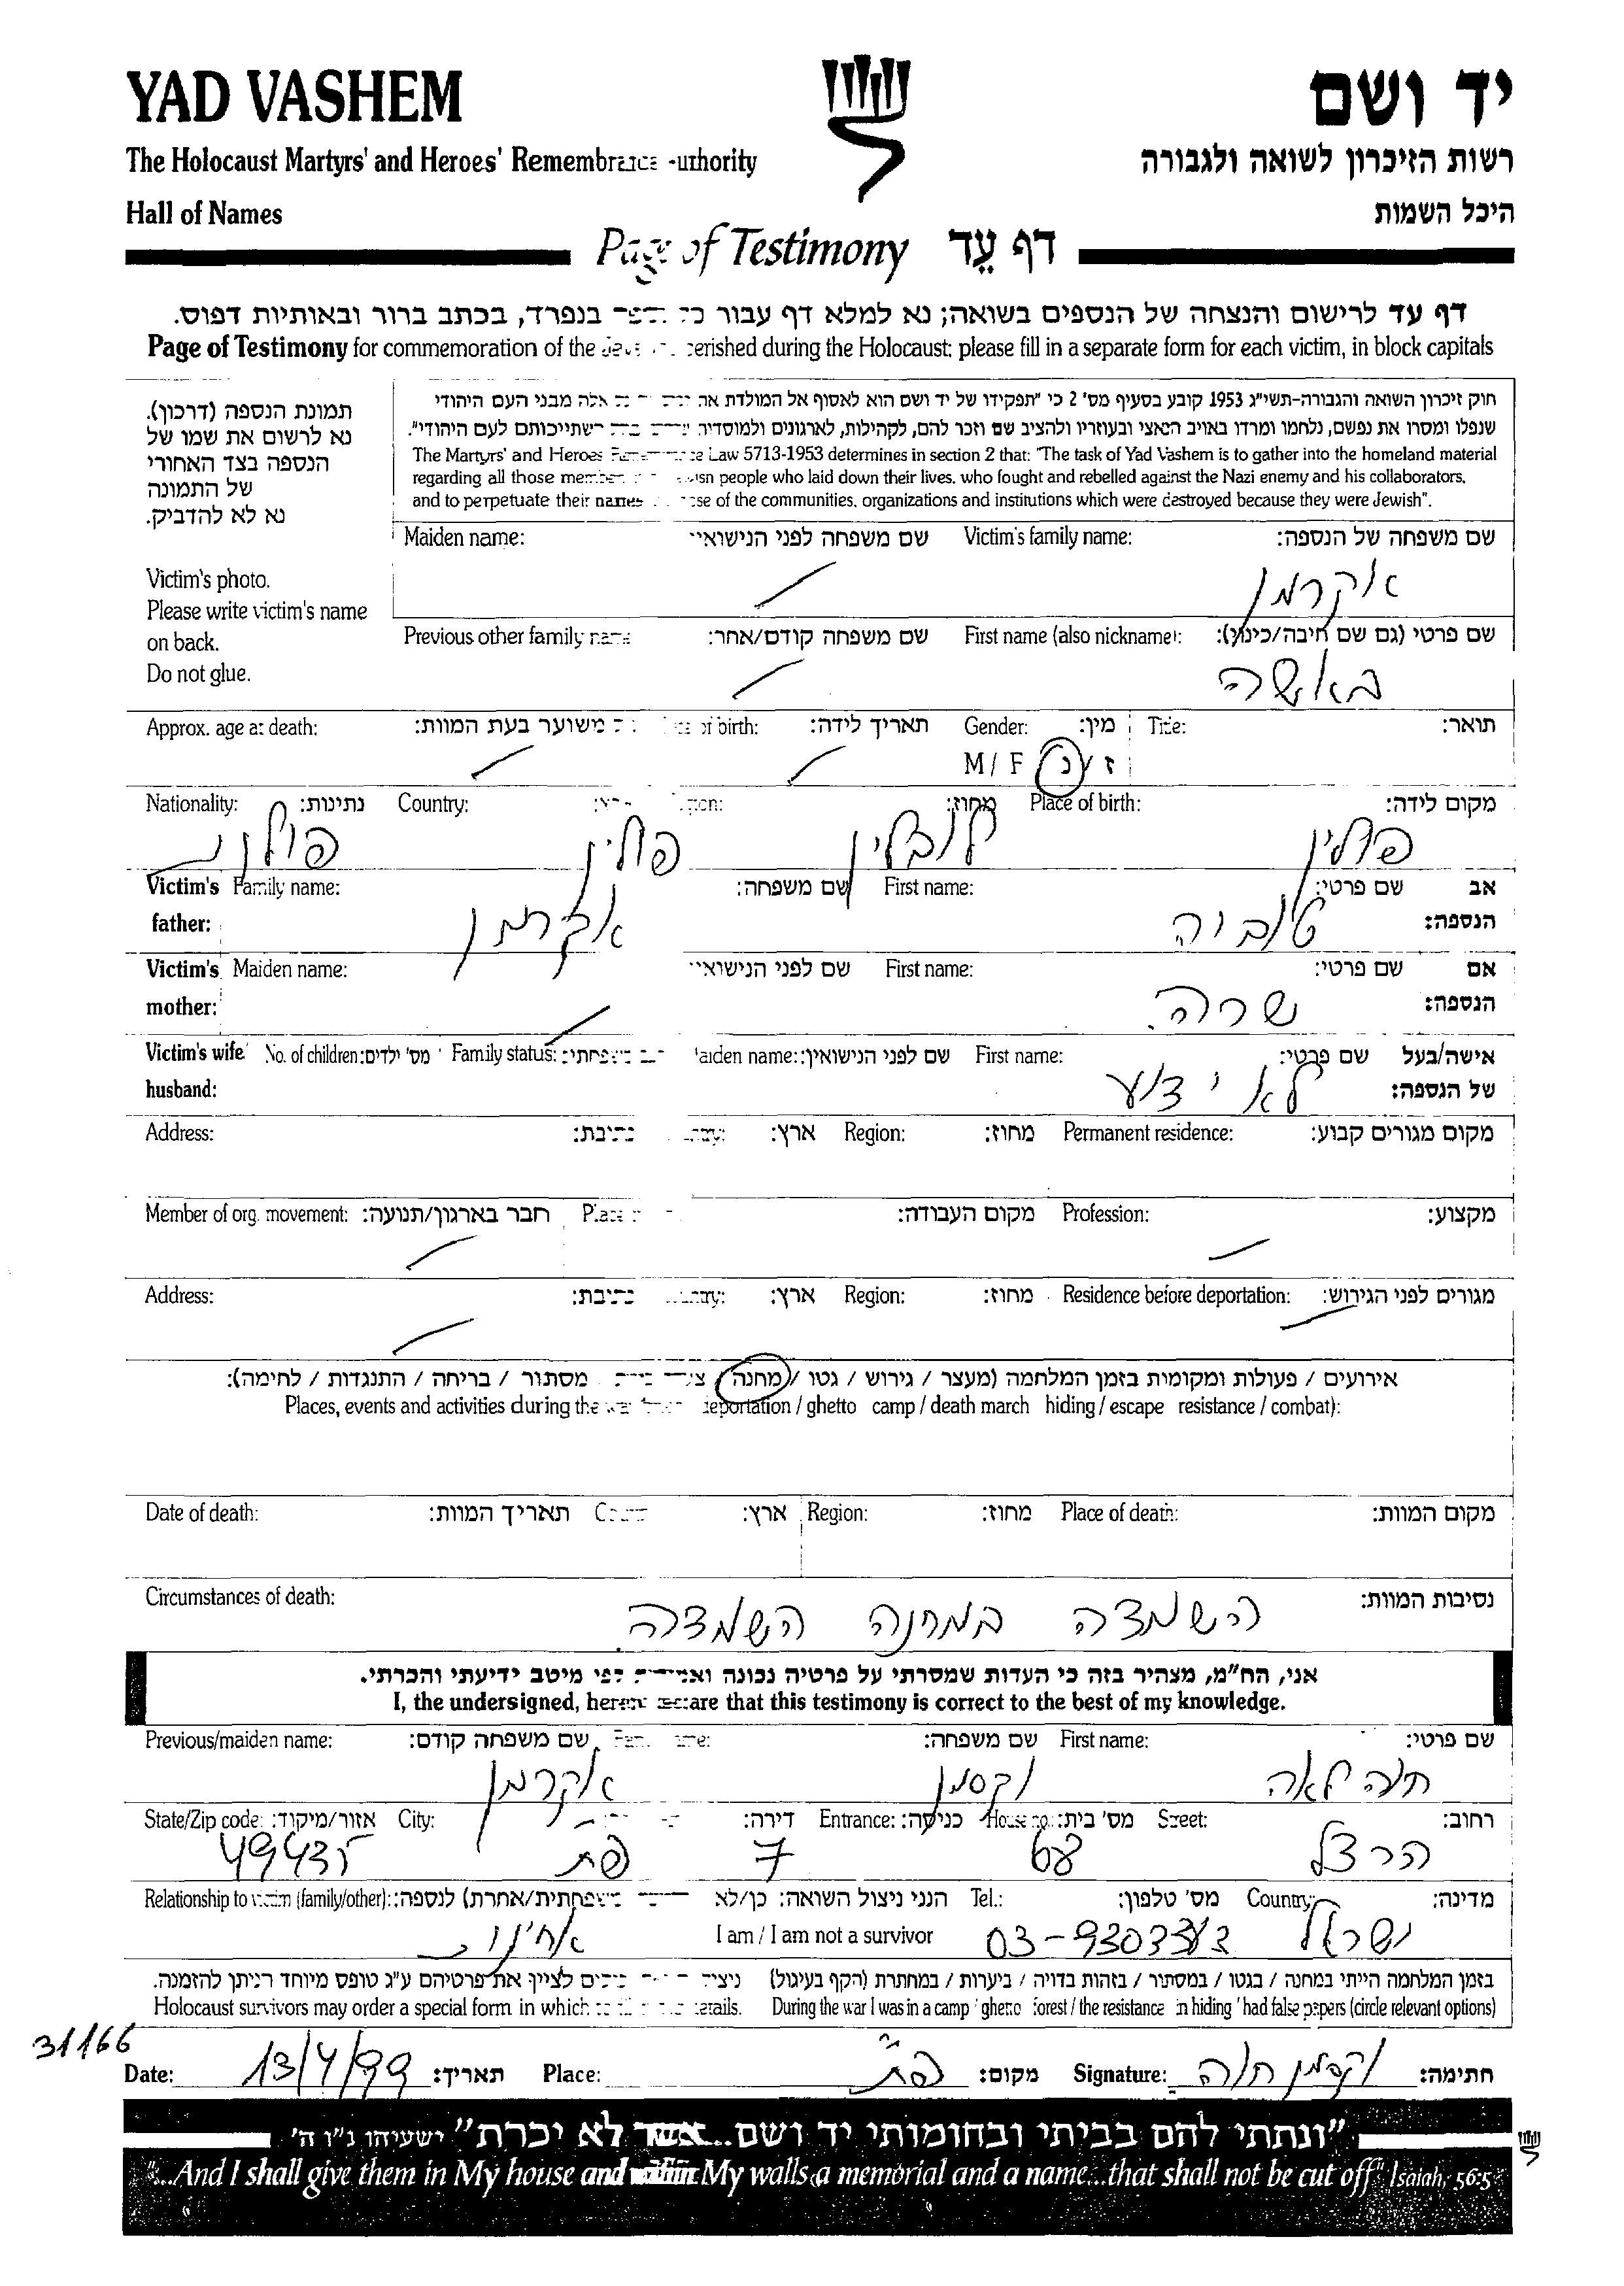 YAD VASHEM
יד ושם
The Holocaust Martyrs' and Heroes' Remembrance Authority
רשות הזיכרון לשואה ולגבורה
Hall of Names
היכל השמות
Page of Testimony דף עֵד
דף עד לרישום והנצחה של הנספים בשואה; נא למלא דף עבור כל נספה בנפרד, בכתב ברור ובאותיות דפוס.
Page of Testimony for commemoration of the perished during the Holocaust; please fill in a separate form for each victim, in block capitals
תמונת הנספה (דרכון).
נא לרשום את שמו של
הנספה בצד האחורי
של התמונה
נא לא להדביק.
Victim's photo.
Please write victim's name
on back.
Do not glue.
חוק זיכרון השואה והגבורה-תשי"ג 1953 קובע בסעיף מס' 2 כי "תפקידו של יד ושם הוא לאסוף אל המולדת את אלה מבני העם היהודי
שנפלו ומסרו את נפשם, נלחמו ומרדו באויב הנאצי ובעוזריו ולהציב שם וזכר להם, לקהילות, לארגונים ולמוסדות השתייכותם לעם היהודי".
The Martyrs' and Heroes Law 5713-1953 determines in section 2 that: "The task of Yad Vashem is to gather into the homeland material
regarding all those people who laid down their lives, who fought and rebelled against the Nazi enemy and his collaborators,
and to perpetuate their names of the communities, organizations and institutions which were destroyed because they were Jewish".
שם משפחה של הנספה: Victim's family name: שם משפחה לפני הנישואין Maiden name:
אקרמן
שם פרטי (גם שם חיבה/כינוי): First name (also nickname): שם משפחה קודם/אחר: Previous other family name
באשה
תואר: Title: מין: Gender: תאריך לידה: of birth: משוער בעת המוות: Approx. age at death:
ז / נ M / F
מקום לידה: Place of birth: מחוז: Country: נתינות: Nationality:
פולין לובלין פולין פולנ
אב שם פרטי: First name: שם משפחה: Family name: Victim's
הנספה: טוביה אקרמן father:
אם שם פרטי: First name: שם לפני הנישואין Maiden name: Victim's
הנספה: שרה mother:
אישה/בעל שם פרטי: First name: שם לפני הנישואין: Maiden name: Family status: מס' ילדים: No. of children: Victim's wife
של הנספה: לא ידוע husband:
מקום מגורים קבוע: Permanent residence: מחוז: Region: ארץ: כתובת: Address:
מקצוע: Profession: מקום העבודה: Place חבר בארגון/תנועה: Member of org. movement:
מגורים לפני הגירוש: Residence before deportation: מחוז: Region: ארץ: כתובת: Address:
אירועים / פעולות ומקומות בזמן המלחמה (מעצר / גירוש / גטו / מחנה / מסתור / בריחה / התנגדות / לחימה):
Places, events and activities during the war deportation / ghetto camp / death march hiding / escape resistance / combat):
מקום המוות: Place of death: מחוז: Region: ארץ: תאריך המוות: Date of death:
נסיבות המוות: Circumstances of death:
השמדה במחנה השמדה.
אני, הח"מ, מצהיר בזה כי העדות שמסרתי על פרטיה נכונה ואמיתית לפי מיטב ידיעתי והכרתי.
I, the undersigned, hereby declare that this testimony is correct to the best of my knowledge.
שם פרטי: First name: שם משפחה: שם משפחה קודם: Previous/maiden name:
חוה לאה וקסמן אקרמן
רחוב: Street: מס' בית: House no.: כניסה: Entrance: דירה: City: אזור/מיקוד: State/Zip code:
הרצל 68 7 פת 49435
מדינה: Country: מס' טלפון: Tel.: הנני ניצול השואה: כן/לא לנספה: Relationship to victim (family/other):
ישראל I am / I am not a survivor
בזמן המלחמה הייתי במחנה / בגטו / במסתור / בזהות בדויה / ביערות / במחתרת (הקף בעיגול)
During the war I was in a camp / ghetto forest / the resistance in hiding / had false papers (circle relevant options)
Holocaust survivors may order a special form in which details.
31166
חתימה: וקסמן חוה Signature: מקום: פת Place: תאריך: 13/4/99 Date:
"ונתתי להם בביתי ובחומותי יד ושם...אשר לא יכרת" ישעיהו נ"ו ה'
"...And I shall give them in My house and within My walls a memorial and a name...that shall not be cut off" Isaiah, 56:5